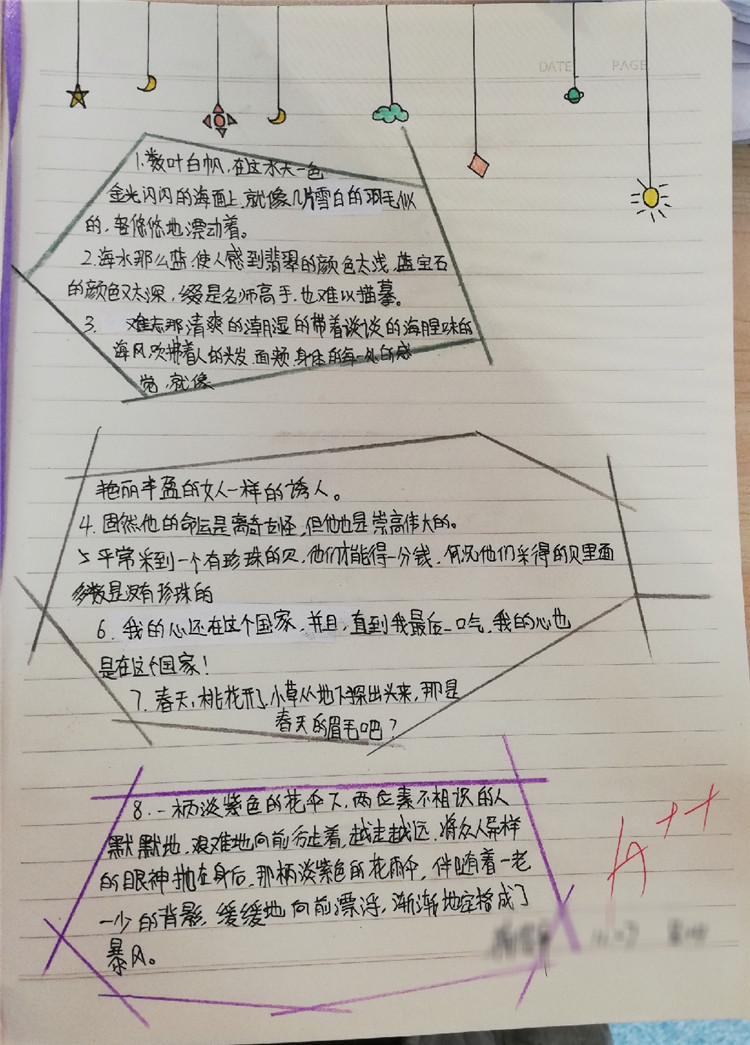 DATE PAGE
1.数叶白帆,在这水天一色
金光闪闪的海面上,就像几片雪白的羽毛似
的,轻悠悠地漂动着。
2.海水那么蓝,使人感到翡翠的颜色太浅,蓝宝石
的颜色又太深,纵是名师高手,也难以描摹。
3. 难忘那清爽的潮湿的带着谈谈的海腥味的
海风,吹拂着人的头发,面颊,身体的每一处的感
觉,就像
艳丽丰盈的女人一样的诱人。
4.固然他的命运是离奇古怪,但他也是崇高伟大的。
5 平常采到一个有珍珠的贝,他们才能得一分钱,何况他们采得的贝里面
多数是没有珍珠的
6.我的心还在这个国家,并且,直到我最后一口气,我的心也
是在这个国家!
7.春天,桃花开了,小草从地下探出头来,那是
春天的眉毛吧?
8.一柄淡紫色的花伞下,两位素不相识的人
默默地,艰难地向前行走着,越走越远,将众人异样
的眼神抛在身后,那柄淡紫色的花雨伞,伴随着一老
一少的背影,缓缓地向前漂浮,渐渐地定格成了
暴风。
A++